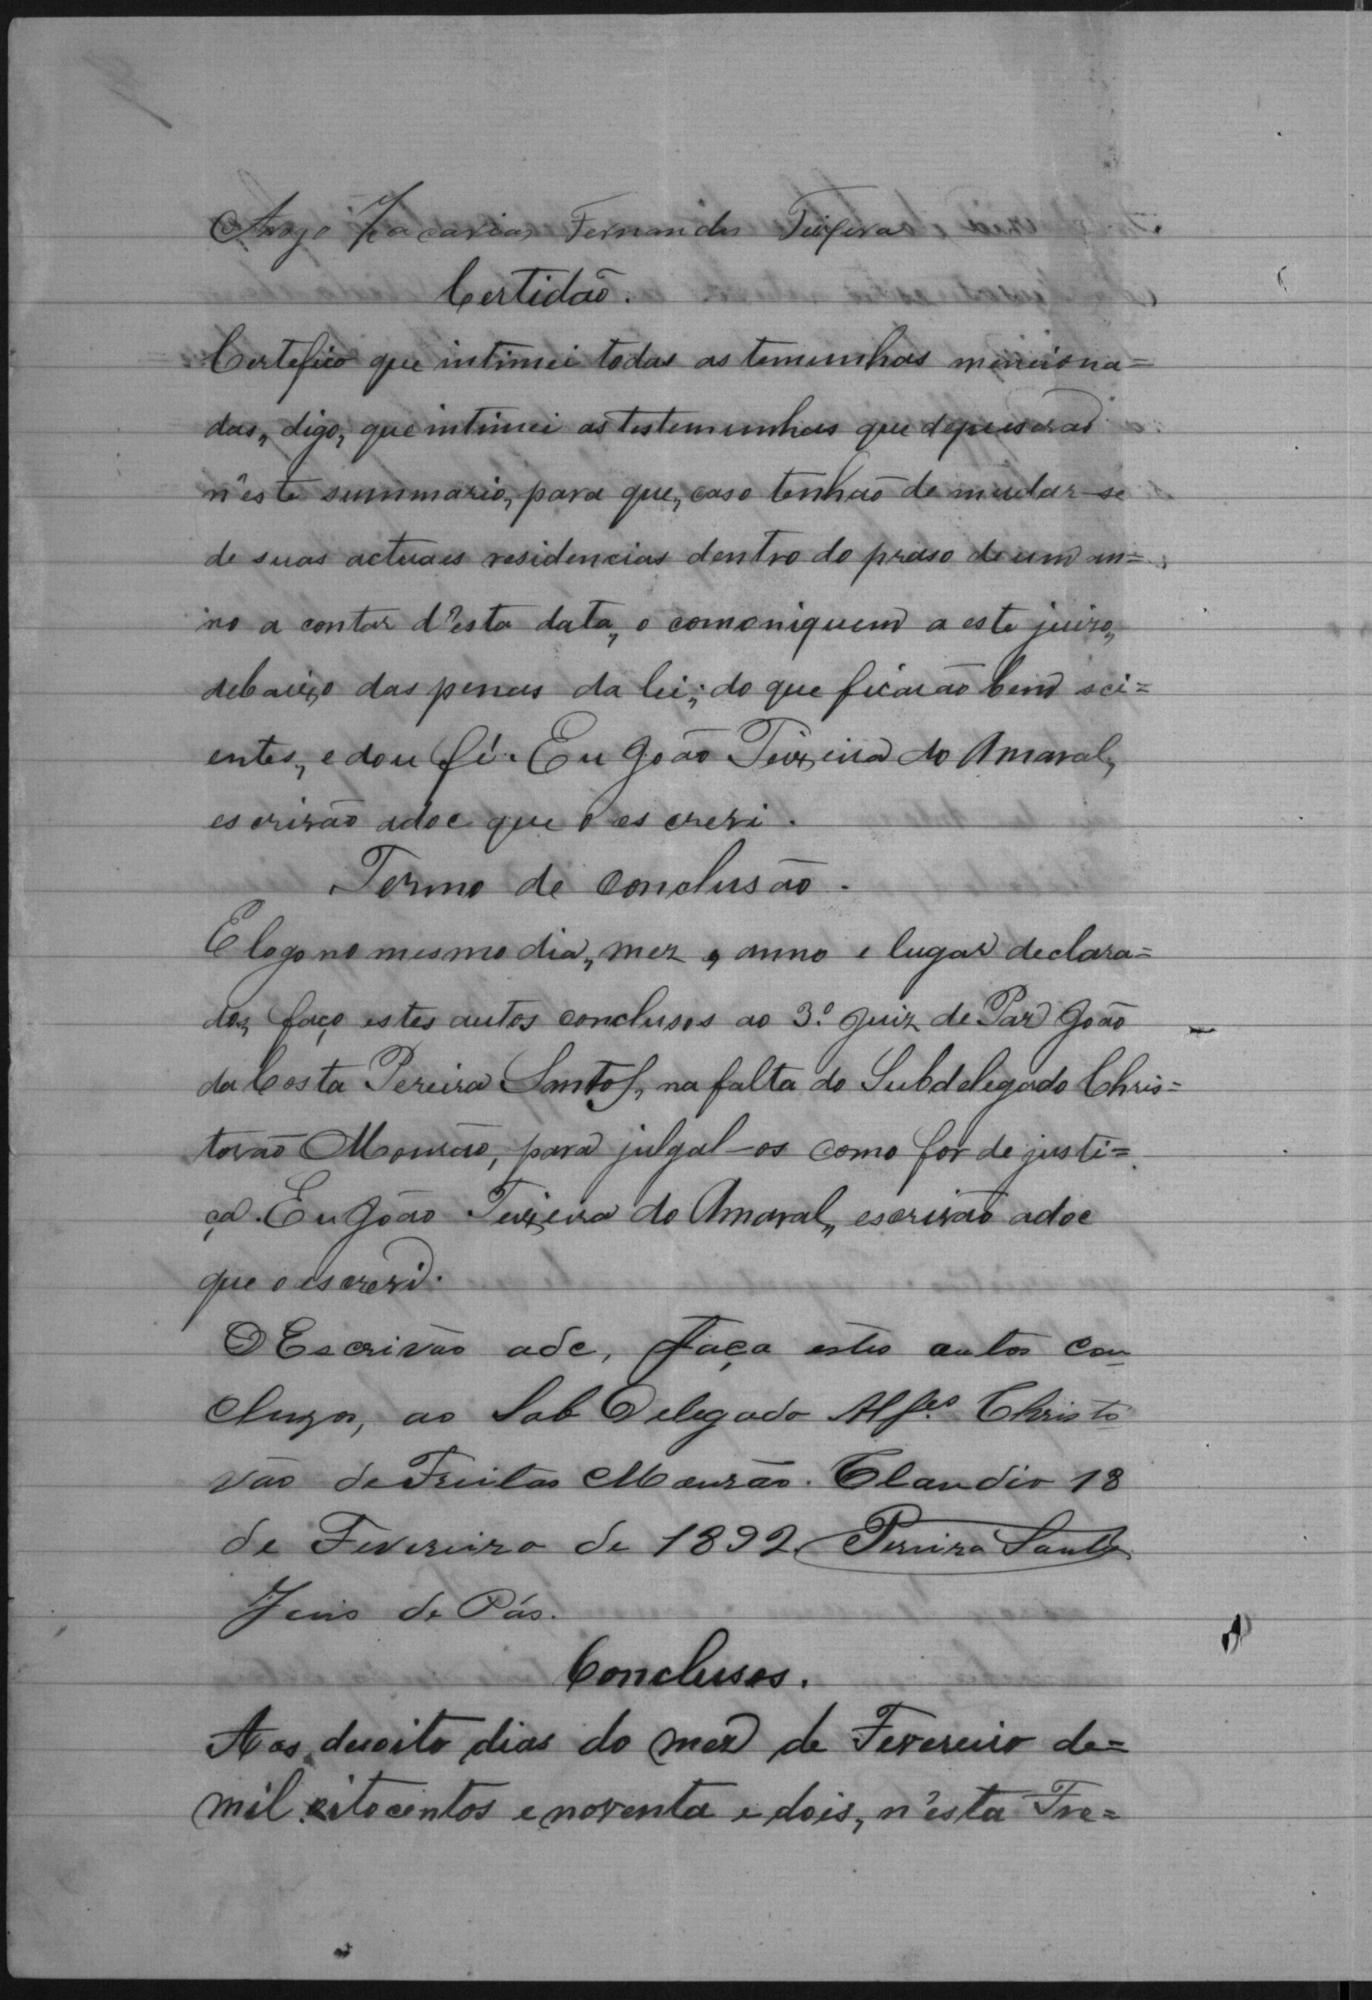 Zacarias Fernandes Teixeira
Certidão.
Certefico que intimei todas as temunhas menciona=
das, digo, que intimei as testemunhas que depuserão
n'este summario, para que, caso tenhão de mudar-se
de suas actuaes residencias dentro do praso de um an=
no a contar d'esta data, o comoniquem a este juizo,
debaixo das penas da lei; do que ficarão bem sci=
entes, e dou fé. Eu João Teixeira do Amaral,
escrivão adoc que o escrevi.
Termo de conclusão.
E logo no mesmo dia, mez, anno e lugar declara=
dos, faço estes autos conclusos ao 3.º Juiz de Paz João
da Costa Pereira Santos, na falta do Subdelegado Chris=
tovão Mourão, para julgal-os como for de justi=
ça. Eu João Teixeira do Amaral, escrivão adoc
que o escrevi.
O Escrivão adc, faça estes autos con
cluzos, ao Sub Delegado Alfes Christo
vão de Freitas Mourão. Claudio 18
de Fevereiro de 1892 Pereira Santos
Juis de Pás.
Conclusos.
Aos desoito dias do mez de Fevereiro de=
mil oitocentos e noventa e dois, n'esta Fre=